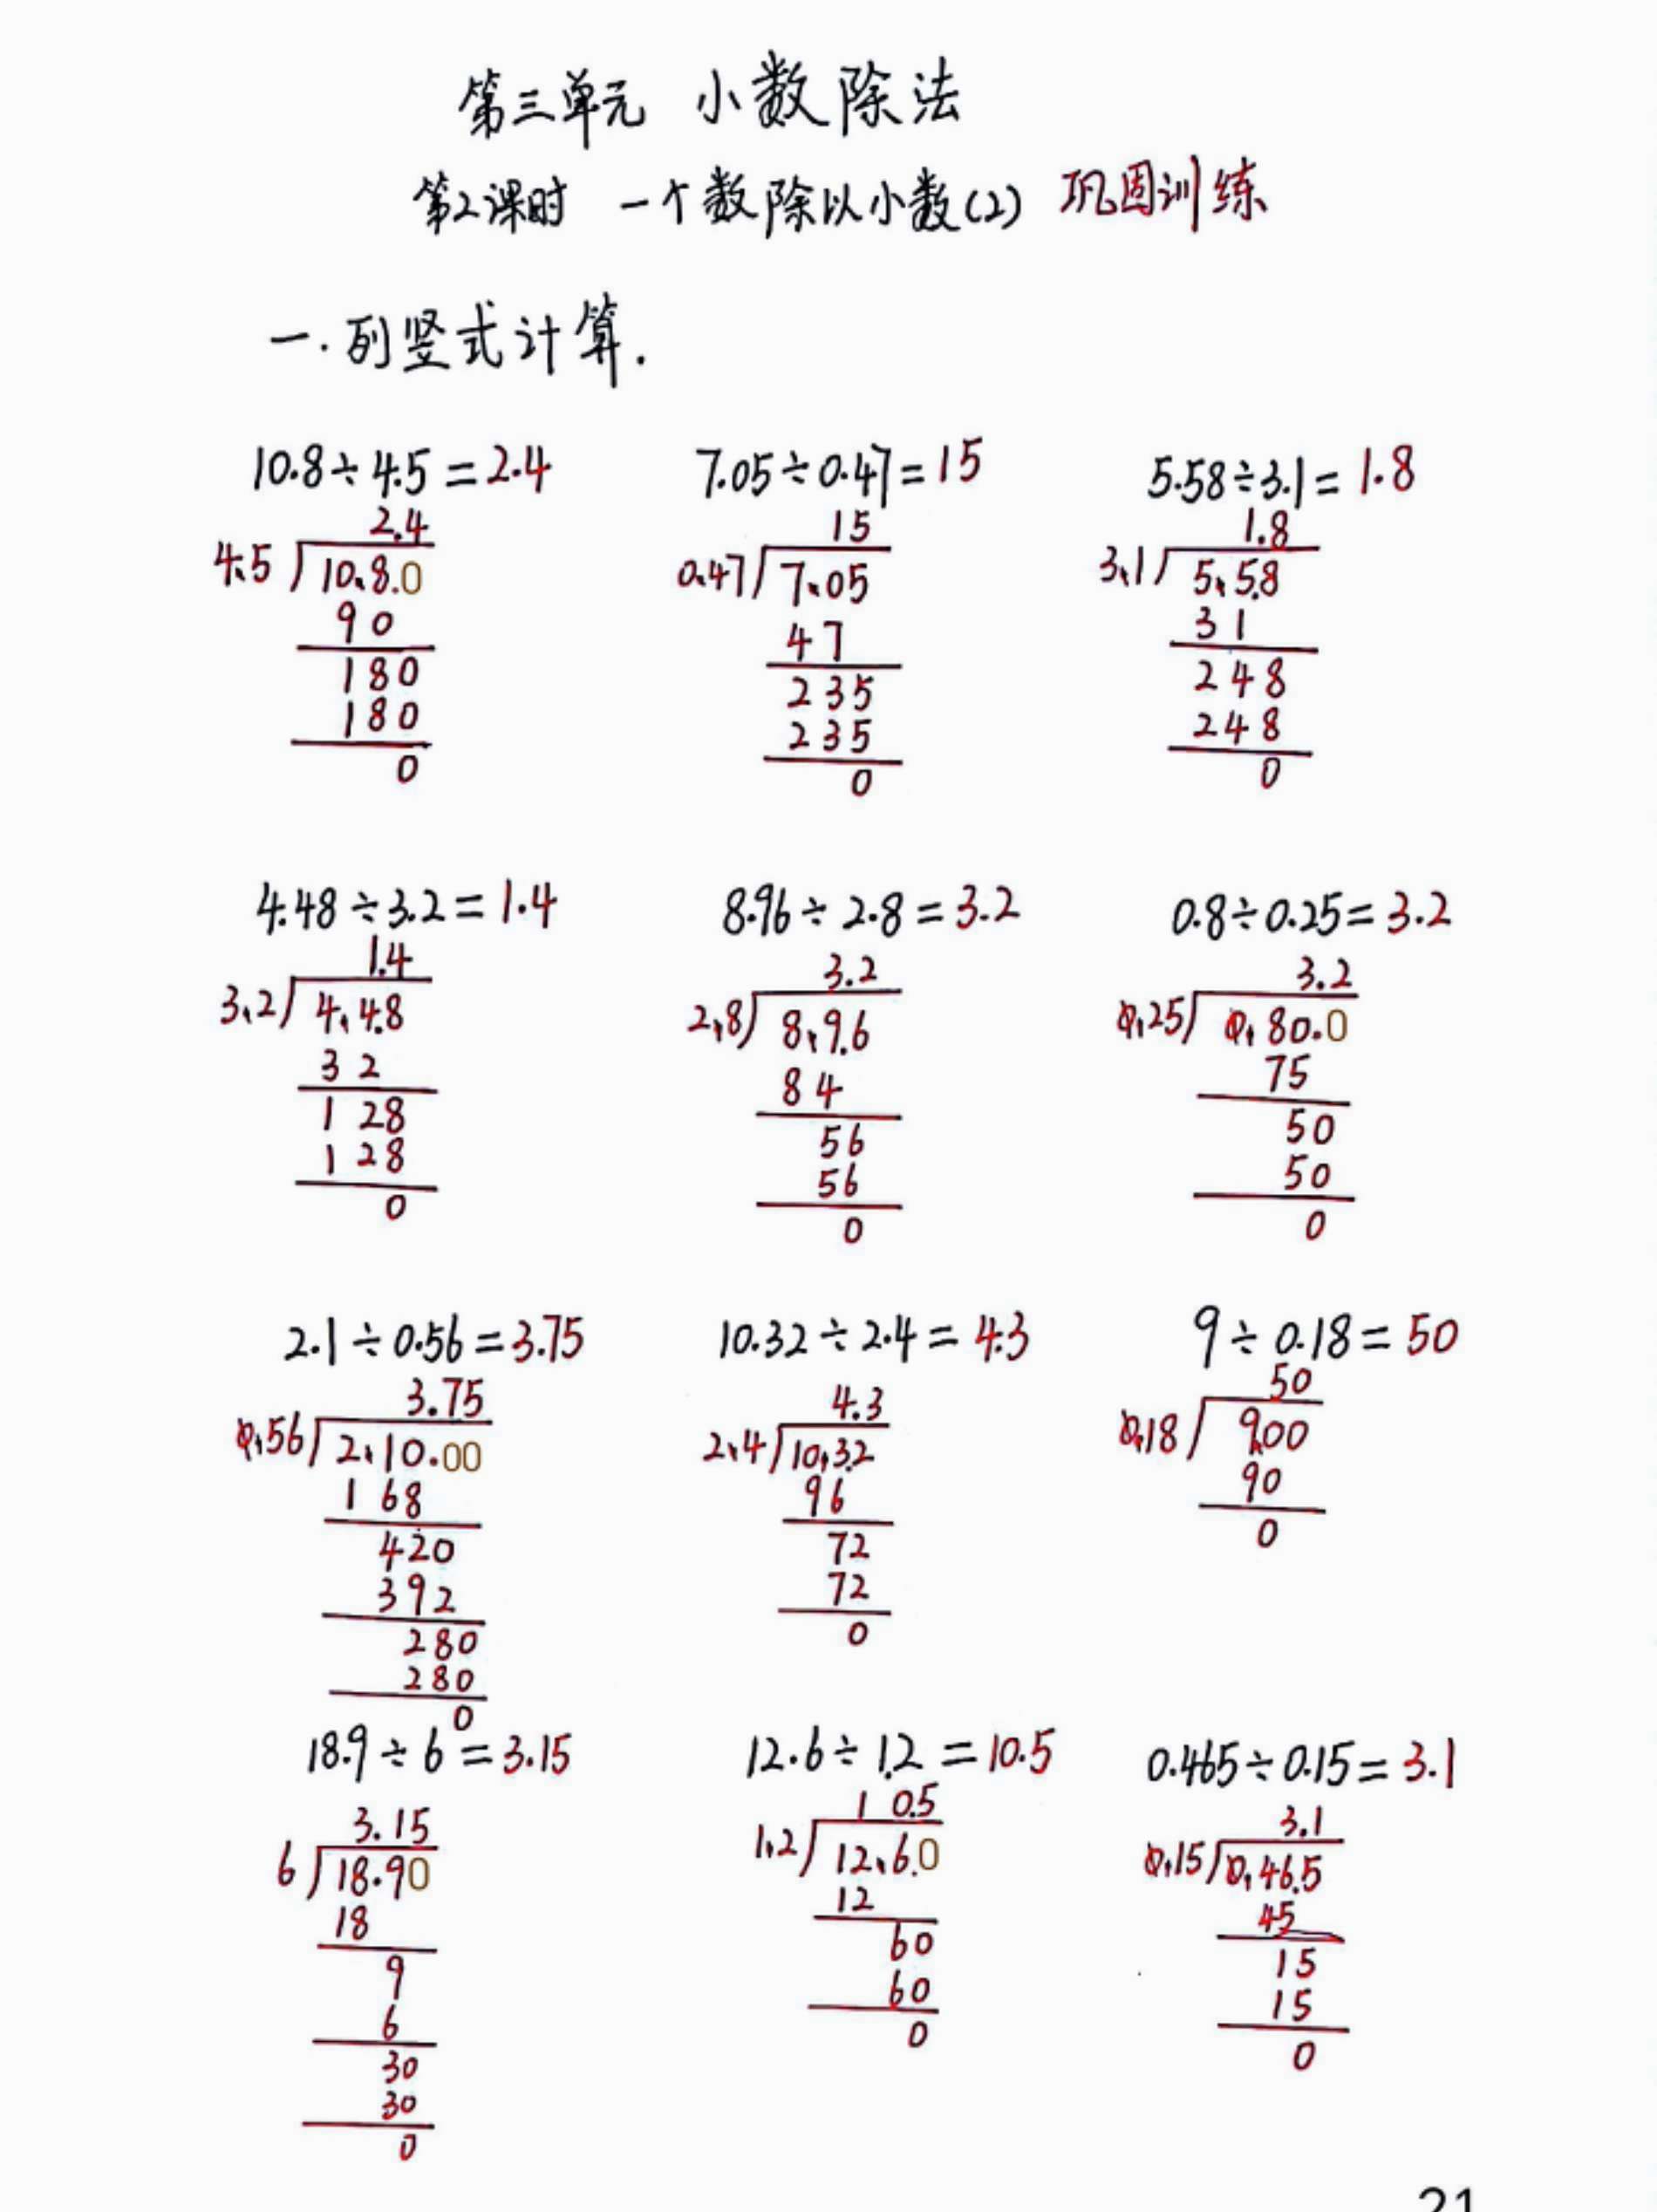 第三单元 小数除法
第2课时 一个数除以小数(2) 巩固训练
一.列竖式计算.
10.8÷4.5=2.4 7.05÷0.47=15 5.58÷3.1=1.8
2.4 15 1.8
4.5 10.8.0 0.47 7.05 3.1 5.5.8
90 47 31
180 235 248
180 235 248
0 0 0
4.48÷3.2=1.4 8.96÷2.8=3.2 0.8÷0.25=3.2
1.4 3.2 3.2
3.2 4.4.8 2.8 8.9.6 0.25 0.80.0
32 84 75
128 56 50
128 56 50
0 0 0
2.1÷0.56=3.75 10.32÷2.4=4.3 9÷0.18=50
3.75 4.3 50
0.56 2.10.00 2.4 10.3.2 0.18 9.00
168 96 90
420 72 0
392 72
280 0
280
0
18.9÷6=3.15 12.6÷1.2=10.5 0.465÷0.15=3.1
3.15 10.5 3.1
6 18.90 1.2 12.6.0 0.15 0.46.5
18 12 45
9 60 15
6 60 15
30 0 0
30
0
21